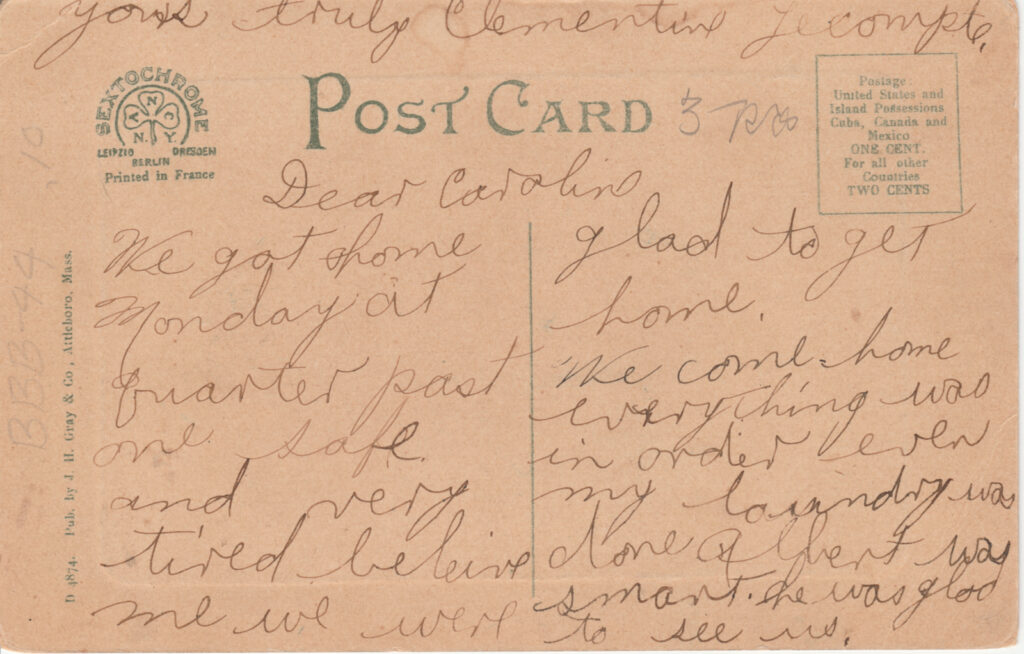 yours truly Clementine Lecompte.
SEXTOCHROME
A N C O
N. Y.
LEIPZIG DRESDEN
BERLIN
Printed in France
POST CARD
3
Postage
United States and
Island Possessions
Cuba, Canada and
Mexico
ONE CENT.
For all other
Countries
TWO CENTS
BBB-44 .10
D 4874. Pub. by J. H. Gray & Co, Attleboro, Mass.
Dear Carolin
We got home
Monday at
quarter past
one safe
and very
tired beleive
me we were
glad to get
home.
We come-home
everything was
in order even
my laundry was
done Albert was
smart. he was glad
to see us.